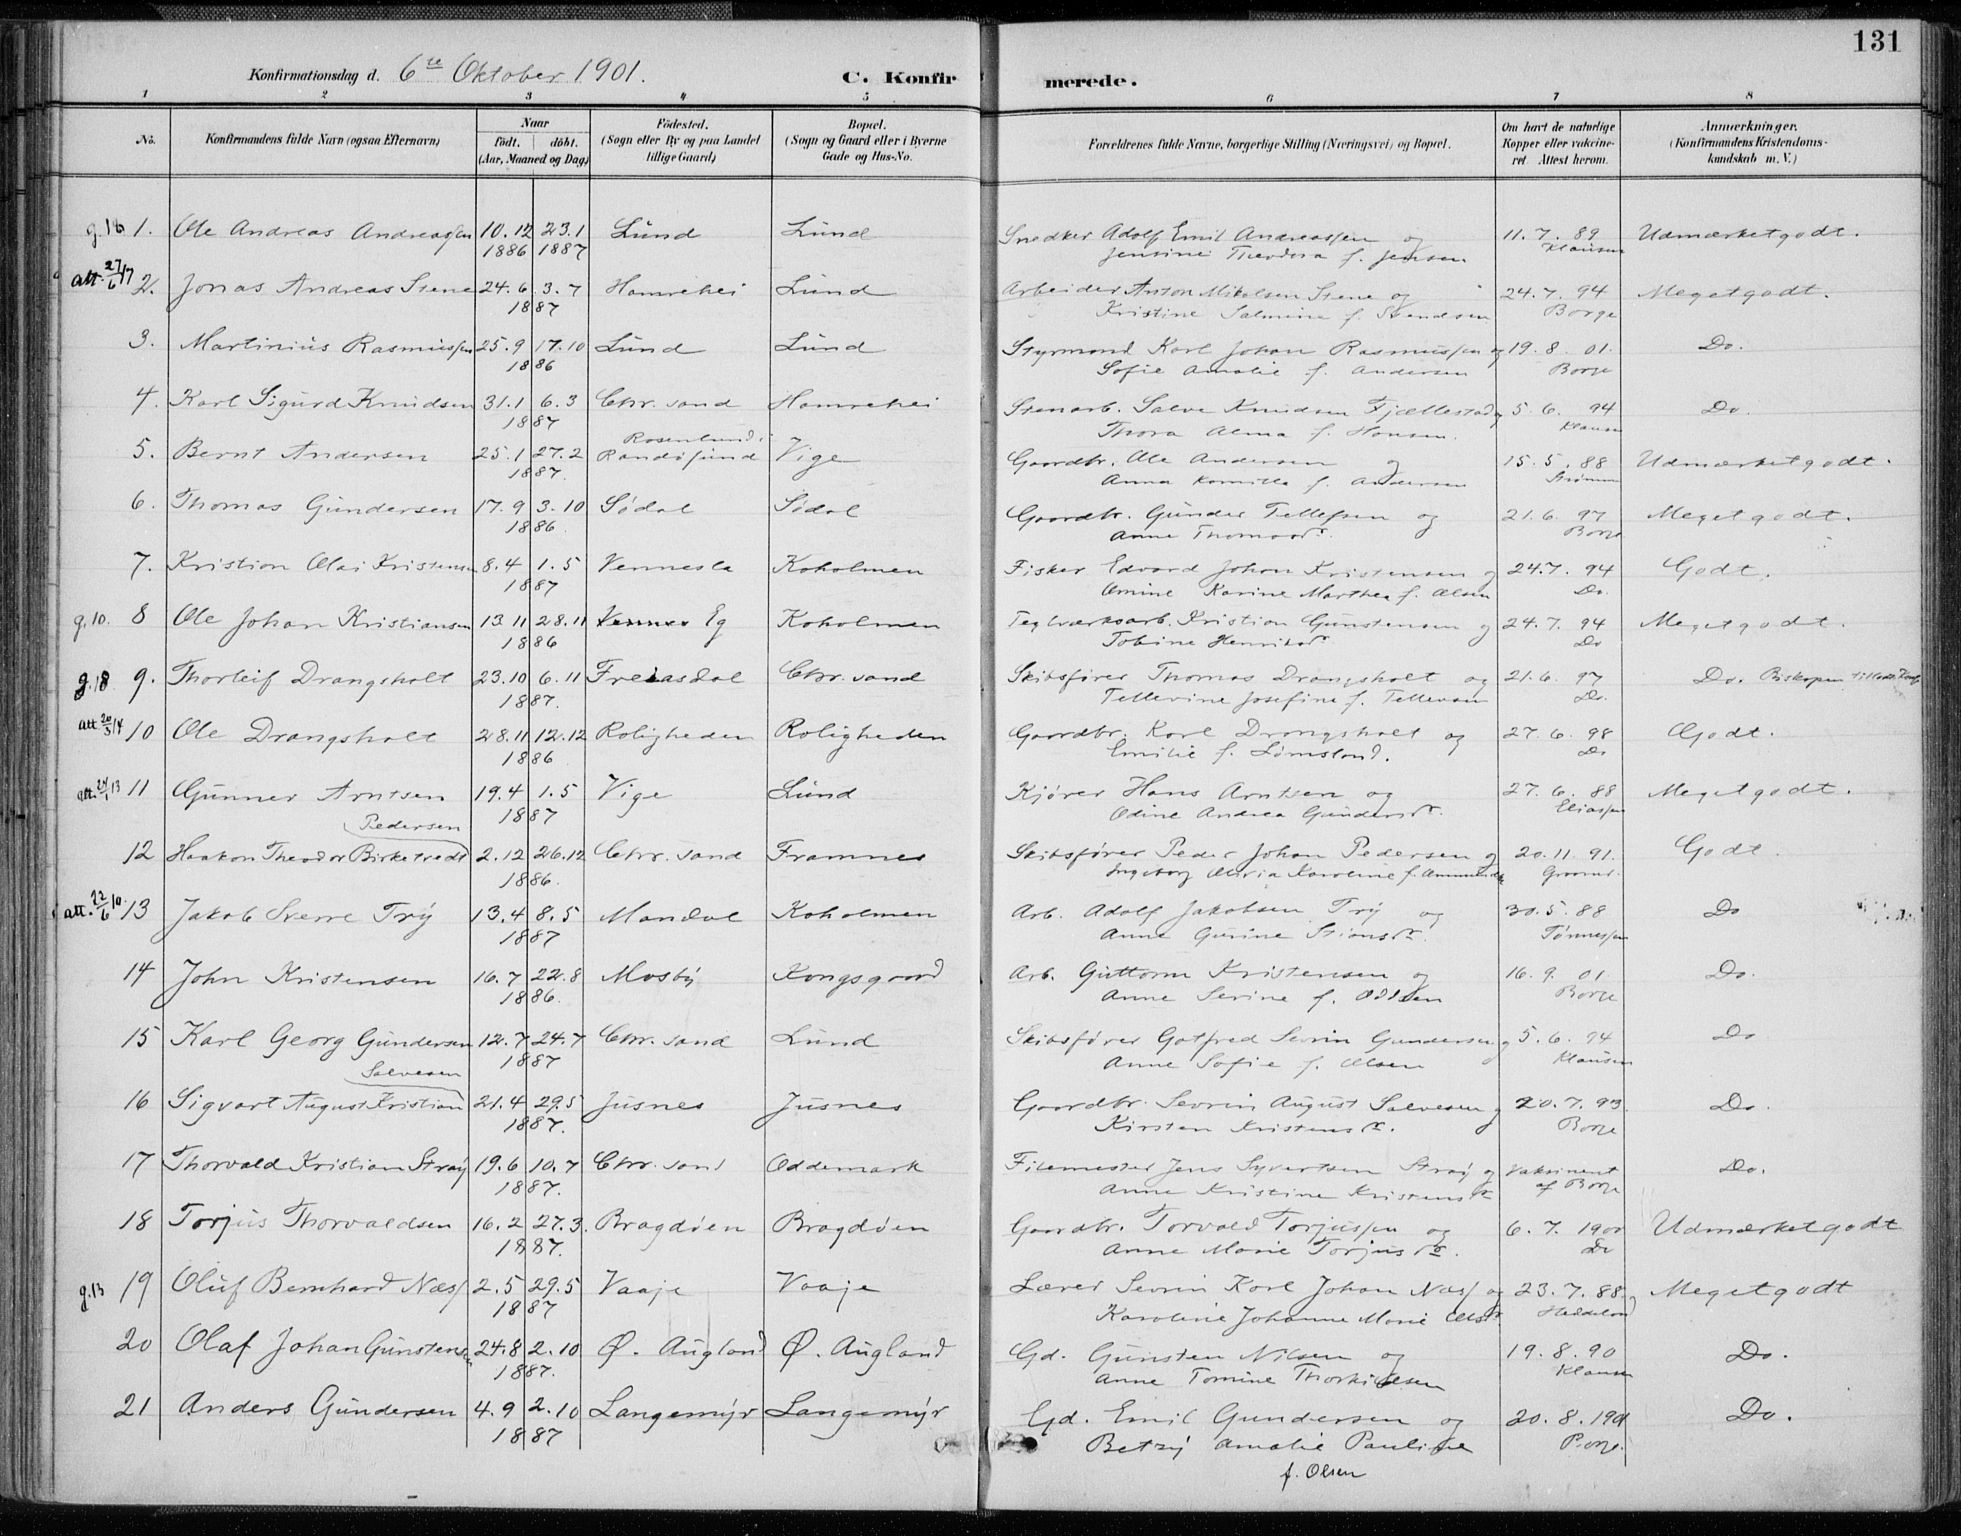 131
Konfirmationsdag d. 6te Oktober 1901. C. Konfirmerede.
1 2 3 4 5 6 7 8
No. Konfirmandens fulde Navn (ogsaa Efternavn) Naar födt. döbt. (Aar, Maaned og Dag) Födested. (Sogn eller By og paa Landet tillige Gaard) Bopæl. (Sogn og Gaard eller i Byerne Gade og Hus-No. Forældrenes fulde Navne, borgerlige Stilling (Næringsvei) og Bopæl. Om havt de naturlige Kopper eller vakcineret Attest herom. Anmærkninger. (Konfirmandens Kristendomskundskab m. V.)
g.16 1. Ole Andreas Andreassen 10.12 23.1 Lund Lund Snedker Adolf Emil Andreassen og 11.7.89 Udmærketgodt.
1886 1887 Jensine Theodora f. Jensen Klausen
att. 27/6 17 2. Jonas Andreas Stene 24.6 3.7 Hamrehei Lund Arbeider Anton Mikalsen Stene og 24.7.94 Megetgodt.
1887 Kristine Salmine f. Svendsen Borge
3. Martinius Rasmussen 25.9 17.10 Lund Lund Styrmand Karl Johan Rasmussen og 19.8.01. Do.
1886 Sofie Amalie f. Andersen Borge
4. Karl Sigurd Knudsen 31.1 6.3 Chr.sand Hamrehei Stenarb. Salve Knudsen Fjællestad og 5.6.94 Do.
1887 Thora Alma f. Hansen. Klausen
5. Bernt Andersen 25.1 27.2 Rosenlund i Randøsund Vige Gaardbr. Ole Andersen og 15.5.88 Udmærketgodt.
1887. Anna Kamilla f. Andersen Strømme
6. Thomas Gundersen 17.9 3.10 Sødal Sødal Gaardbr. Gunder Tellefsen og 21.6.97 Megetgodt.
1886. Anne Thomasdr. Borge
7. Kristian Olai Kristensen 8.4 1.5 Vennesla Koholmen Fisker Edvard Johan Kristensen og 24.7.94 Godt.
1887 Amine Karine Marthea f. Olsen Do.
g.10. 8 Ole Johan Kristiansen 13.11 28.11 Vennes Eg Koholmen Teglværksarb. Kristian Gunstensen og 24.7.94 Megetgodt.
1886 Tobine Henriksdr. Do
g.18 9. Thorleif Drangsholt 23.10 6.11 Freiasdal Chr.sand Skibsfører Thomas Drangsholt og 21.6.97 Do. Biskopen tillod
1887. Tellevine Josefine f. Tellevsen Do.
att 20/3 14 10 Ole Drangsholt 28.11 12.12 Roligheden Roligheden Gaardbr. Karl Drangsholt og 27.6.98 Godt.
1886 Emilie f. Lømsland. Do
att. 24/1 13 11 Gunner Arntsen 19.4 1.5 Vige Lund Kjører Hans Arntsen og 27.6.88 Megetgodt.
1887 Odine Andrea Gundersdr. Eliassen
Pedersen
12 Haakon Theodor Birketvedt 2.12 26.12 Chr.sand Framnes Skibsfører Peder Johan Pedersen og 20.11.91. Godt
1886. Ingeborg Maria Karoline f.
att. 22/6 10. 13 Jakob Sverre Try 13.4 8.5 Mandal Koholmen Arb. Adolf Jakobsen Try og 30.5.88 Do
1887 Anne Gurine Stiansdr. Tønnessen
14 John Kristensen 16.7 22.8 Mosby Kongsgaard Arb. Guttorm Kristensen og 16.9.01. Do.
1886. Anne Serine f. Oddsen Borge
15 Karl Georg Gundersen 12.7 24.7 Chr.sand Lund Skibsfører Gotfred Sevrin Gundersen og 5.6.94 Do
1887 Anne Sofie f. Olsen Klausen
Salvesen
16 Sigvart August Kristian 21.4 29.5 Jusnes Jusnes Gaardbr. Sevrin August Salvesen og 20.7.93. Do.
1887. Kirsten Kristensdr. Borge
17 Thorvald Kristian Stray 19.6 10.7 Chr.sand Oddemark Filemester Jens Syvertsen Stray og Vaksineret Do.
1887. Anne Kristine Kristensdr af Borge
18 Torjus Thorvaldsen 16.2 27.3. Bragdøen Bragdøen Gaardbr. Torvald Torjussen og 6.7.1900 Udmærketgodt
1887. Anne Marie Torjusdr. Do
g.13 19 Oluf Bernhard Næss 2.5 29.5 Vaaje Vaaje Lærer Sevrin Karl Johan Næss og 23.7.88. Megetgodt
1887 Karoline Johanne Marie Olsdr Heldeland
20 Olaf Johan Gunstensen 24.8 2.10 Ø. Augland Ø. Augland Gd. Gunsten Nilsen og 19.8.90 Do.
1887. Anne Tomine Thorkildsen Klausen
21 Anders Gundersen 4.9 2.10 Langemyr Langemyr Gd. Emil Gundersen og 20.8.1901 Do.
1887 Betzy Amalie Pauline Borge.
f. Olsen